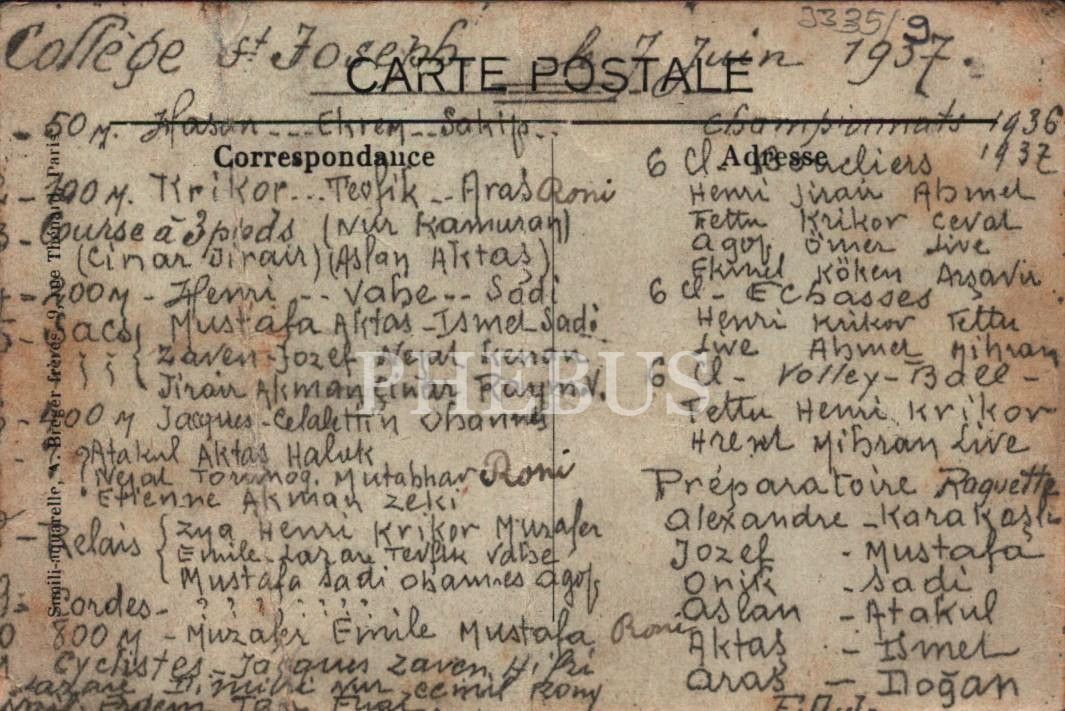 3335/9
Collège St Joseph le 7 Juin 1937.
CARTE POSTALE
Correspondance
Adresse
Simili-aquarelle, A. Breger frères, 9, rue Thénard, Paris
50 M. Hasan --- Ekrem -- Sakip --
Krikor --- Tevfik -- Aras Roni
Course à 3 pieds (Nur Kamuran)
(Cinar Jirair) (Aslan Aktas)
200 M - Henri -- Vahe -- Sadi
Sacs { Mustafa Aktas - Ismet Sadi
Zaven - Jozef Nejat Kenan
Jirair Akman Cinar
400 M Jacques - Celalettin Ohannes
Atakul Aktas Haluk
Nejat Mutabhar Roni
Etienne Akman Zeki
Relais { Zya Henri Krikor Muzafer
Emile - Lazare Tevfik Vahe
Mustafa Sadi Ohannes Agop
Cordes -
800 M - Muzafer Emile Mustafa Roni
Cyclistes - Jacques Zaven
Lazare Dimitri Nur Cemil Rony
Championnats 1936
1937
6 Cl - Boucliers
Henri Jirair Ahmet
Fettu Krikor Ceval
Agop Ömer Live
Köken
6 Cl - Echasses
Henri Krikor Fettu
Live Ahmet Mihran
6 Cl - Volley-Ball -
Fettu Henri Krikor
Hrent Mihran Live
Préparatoire Raquette
Alexandre - Karakaşlı
Jozef - Mustafa
Onik - Sadi
Aslan - Atakul
Aktas - Ismet
Aras - Doğan
PHEBUS